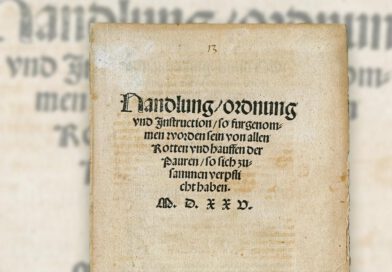 13
Handlung/ordnung
vnd Jnstruction/so furgenom-
men worden sein von allen
Rotten vnd hauffen der
Pauren/so sich zu-
sammen verpfli
cht haben.
M. D. XXV.